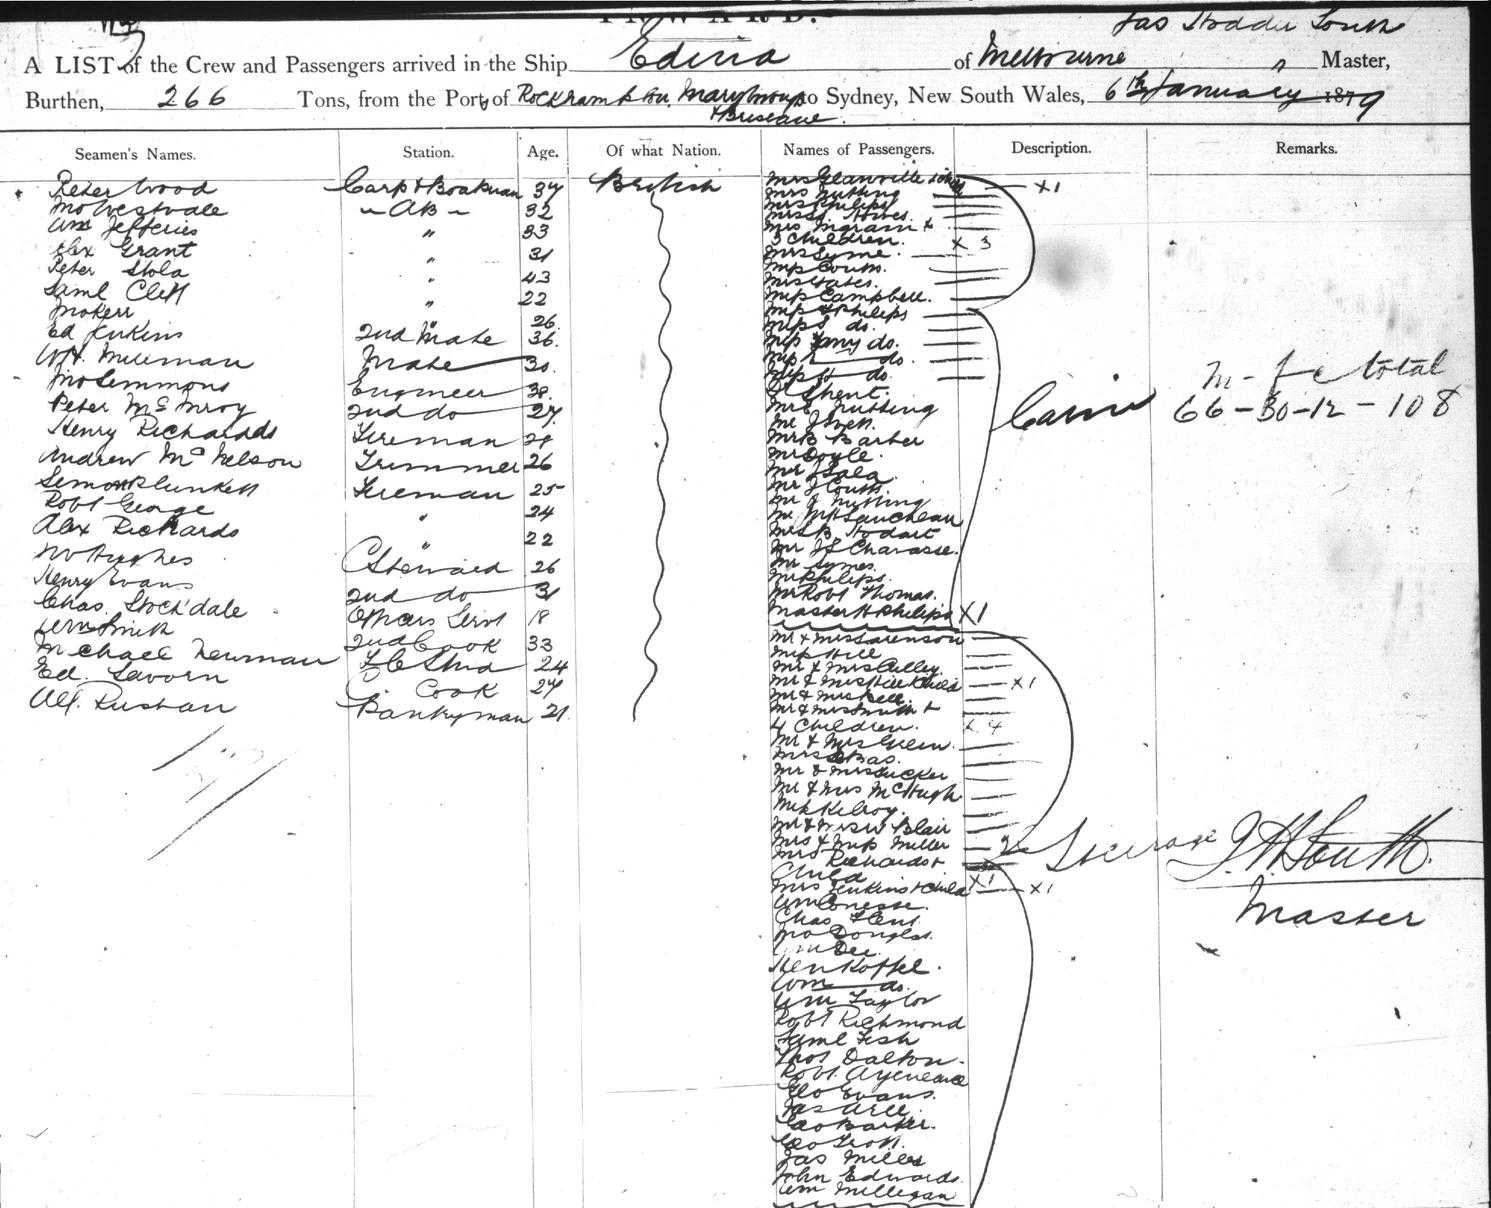 INWARD.
Jas Hodder South
A LIST of the Crew and Passengers arrived in the Ship Edina of Melbourne Master,
Burthen, 266 Tons, from the Port of Rockhampton, Maryboroug to Sydney, New South Wales, 6th January 1879
& Brisbane.
Seamen's Names. Station. Age. Of what Nation. Names of Passengers. Description. Remarks.
Peter Wood Carp & Boatman 37 British
Jno Westvale AB 32
Wm Jefferies " 33
Alex Grant " 31
Peter Stola " 43
Saml Clett " 22
Jno Kerr " 26
Ed Jenkins 2nd Mate 36
Mate 30
Jno Lemmons Engineer 38
Peter 2nd do 27
Henry Richards Fireman
Andrew Mc Nelson Trimmer 26
Simon Plunkett Fireman 25
Robt George " 24
Alex Richards " 22
Hughes C Steward 26
Henry Evans 2nd do 31
Chas. Stockdale Officers Servt 18
Wm Smith 2nd Cook 33
Michael Newman 24
Ed. Cook 24
Pantryman 21
Mrs Glanville & child X1
Mrs Nutting
Mrs Philips
Miss Howes.
Mrs Ingram &
3 Children. X 3
Mrs Syme.
Miss Couth.
Miss Yates.
Miss Campbell.
Miss Philips
Miss S do.
Miss Fanny do.
Miss do.
Miss H do.
Ghent.
Mr E Nutting
Mr
Mr B Barber
Mr Doyle.
Mr J Sala
Mr J Couth
Mr J Nutting
Mr McLauchlan
Mrs B. Stodart
Mr JS Charasse.
Mr Symes.
Mr Philips.
Mr Robt Thomas.
Master H Philips X1
Cabin
m - f c total
66 - 30 - 12 - 108
Mr & Mrs Sorenson
Miss Hill
Mr & Mrs Culley
Mr & Mrs Hill & Child X1
Mr & Mrs Bell.
Mr & Mrs Smith &
4 Children. X 4
Mr & Mrs Green.
Mrs
Mr & Mrs Tucker
Mr & Mrs McHugh
Miss Kilroy.
Mr & Mrs W Blair
Mrs & Miss Miller 2
Mrs Richards &
Child X1
Mrs Jenkins & Child X1
Steerage
J. H. South.
Master
Wm
Chas Flent
Jno Douglas.
Wm Dee.
Hen Koffel.
Wm do.
Wm Taylor
Robt Richmond
Saml Fish
Thos Dalton.
Robt.
Geo Evans.
Jas
Geo Barker.
Geo
Jas Miller
John Edwards.
Wm Milligan